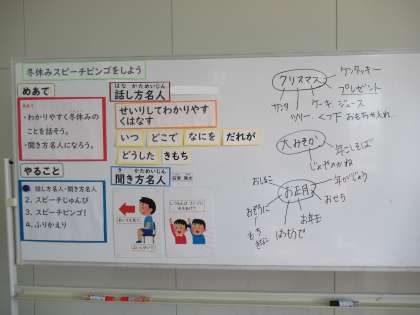 冬休みスピーチビンゴをしよう
めあて
めあて
・わかりやすく冬休みの
ことを話そう。
・聞き方名人になろう。
やること
話し方名人・聞き方名人
2. スピーチじゅんび
3. スピーチビンゴ!
4. ふりかえり
はな かためいじん
話し方名人
せいりしてわかりやす
くはなす
いつ どこで なにを だれが
どうした きもち
き かためいじん
聞き方名人
クリスマス
ケンタッキー
プレゼント
サンタ
ケーキ ジュース
ツリー くつ下 おもちゃ
大みそか
年こしそば
じょやのかね
お正月
おしるこ
年がじょう
おぞうに
おせち
お年玉
もち
はつもうで